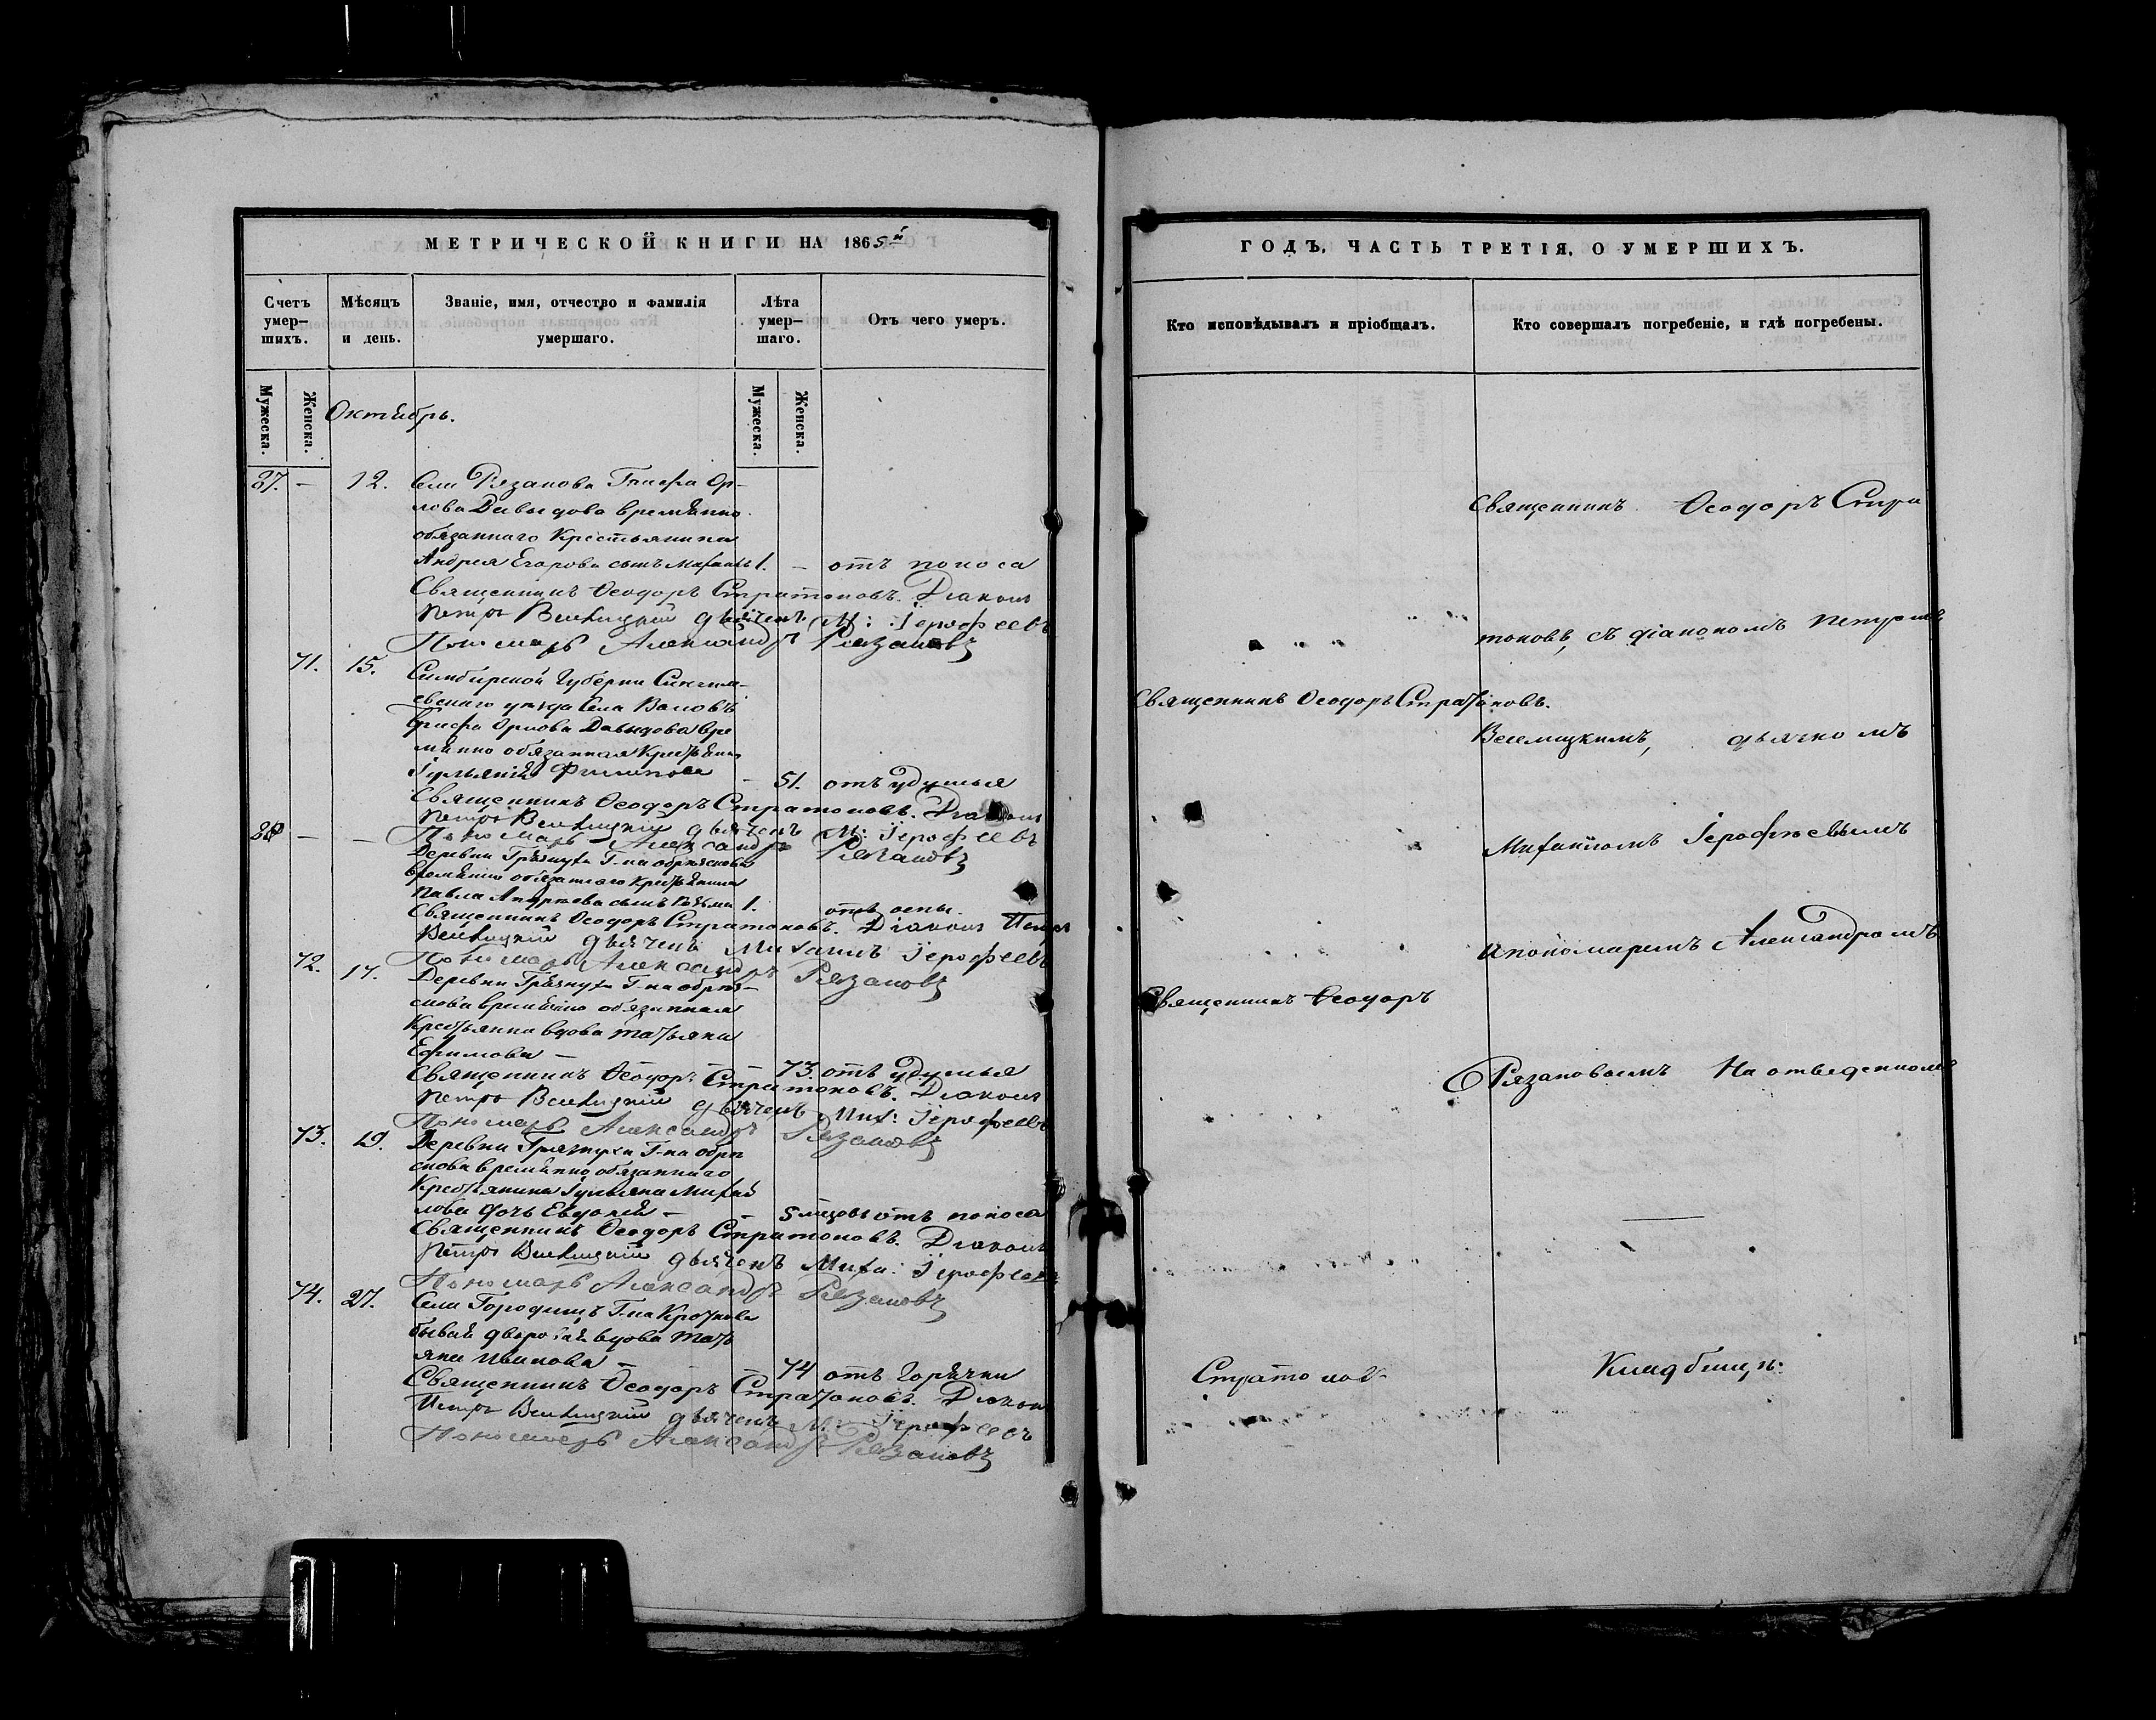 МЕТРИЧЕСКОЙ КНИГИ НА 1865й
Счетъ умер-шихъ.
Мѣсяцъ и день.
Званіе, имя, отчество и фамилія умершаго.
Лѣта умер-шаго.
Отъ чего умеръ.
Мужеска.
Женска.
Мужеска.
Женска.
Октябрь.
37. — 12. Села Рязанова Графа Ор-
лова Давыдова временно
обязаннаго Крестьянина
Андрея Егорова сынъ Михаилъ 1. — отъ поноса
Священникъ Ѳеодоръ Стратоновъ. Діаконъ
Петръ Веселицкій дьячекъ М: Іерофеевъ
Пономарь Александръ Рязановъ
71. 15. Симбирской Губерніи Сингиле-
евскаго уѣзда Села
Графа Орлова Давыдова вре
менно обязанная Крестьянка
Филипова — 51. отъ удушья
Священникъ Ѳеодоръ Стратоновъ. Діаконъ
Петръ Веселицкій дьячекъ М: Іерофеевъ
Пономарь Александръ Рязановъ
38 — — Деревни Грязнухи Г-на Обрѣзкова
временно обязаннаго Крестьянина
Павла сынъ 1. отъ оспы.
Священникъ Ѳеодоръ Стратоновъ. Діаконъ Петръ
Веселицкій дьячекъ Михаилъ Іерофеевъ
Пономарь Александръ Рязановъ
72. 17. Деревни Грязнухи Г-на Обрѣз-
кова временно обязанная
Крестьянка вдова Татьяна
Ефимова — — 73. отъ удушья
Священникъ Ѳеодоръ Стратоновъ. Діаконъ
Петръ Веселицкій дьячекъ Мих: Іерофеевъ
Пономарь Александръ Рязановъ
73. 19. Деревни Грязнухи Г-на Обрѣ
зкова временно обязаннаго
Крестьянина Михай
лова дочь Евдокія — — 5 мѣсцовъ отъ поноса
Священникъ Ѳеодоръ Стратоновъ. Діаконъ
Петръ Веселицкій дьячекъ Миха: Іерофеевъ
Пономарь Александръ Рязановъ
74. 27. Села Городищъ Г-на
бывшая дворовая вдова Тать
яна Иванова — — 74 отъ горячки
Священникъ Ѳеодоръ Стратоновъ. Діаконъ
Петръ Веселицкій дьячекъ М: Іерофеевъ
Пономарь Александръ Рязановъ
ГОДЪ, ЧАСТЬ ТРЕТІЯ, О УМЕРШИХЪ.
Кто исповѣдывалъ и пріобщалъ.
Кто совершалъ погребеніе, и гдѣ погребены.
Священникъ Ѳеодоръ Стра
тоновъ, съ діакономъ Петромъ
Священникъ Ѳеодоръ Стратоновъ.
Веселицкимъ, дьячкомъ
Михаиломъ Іерофеевымъ
и пономаремъ Александромъ
Священникъ Ѳеодоръ
Рязановымъ На отведенномъ
Стратоновъ
Кладбищѣ: